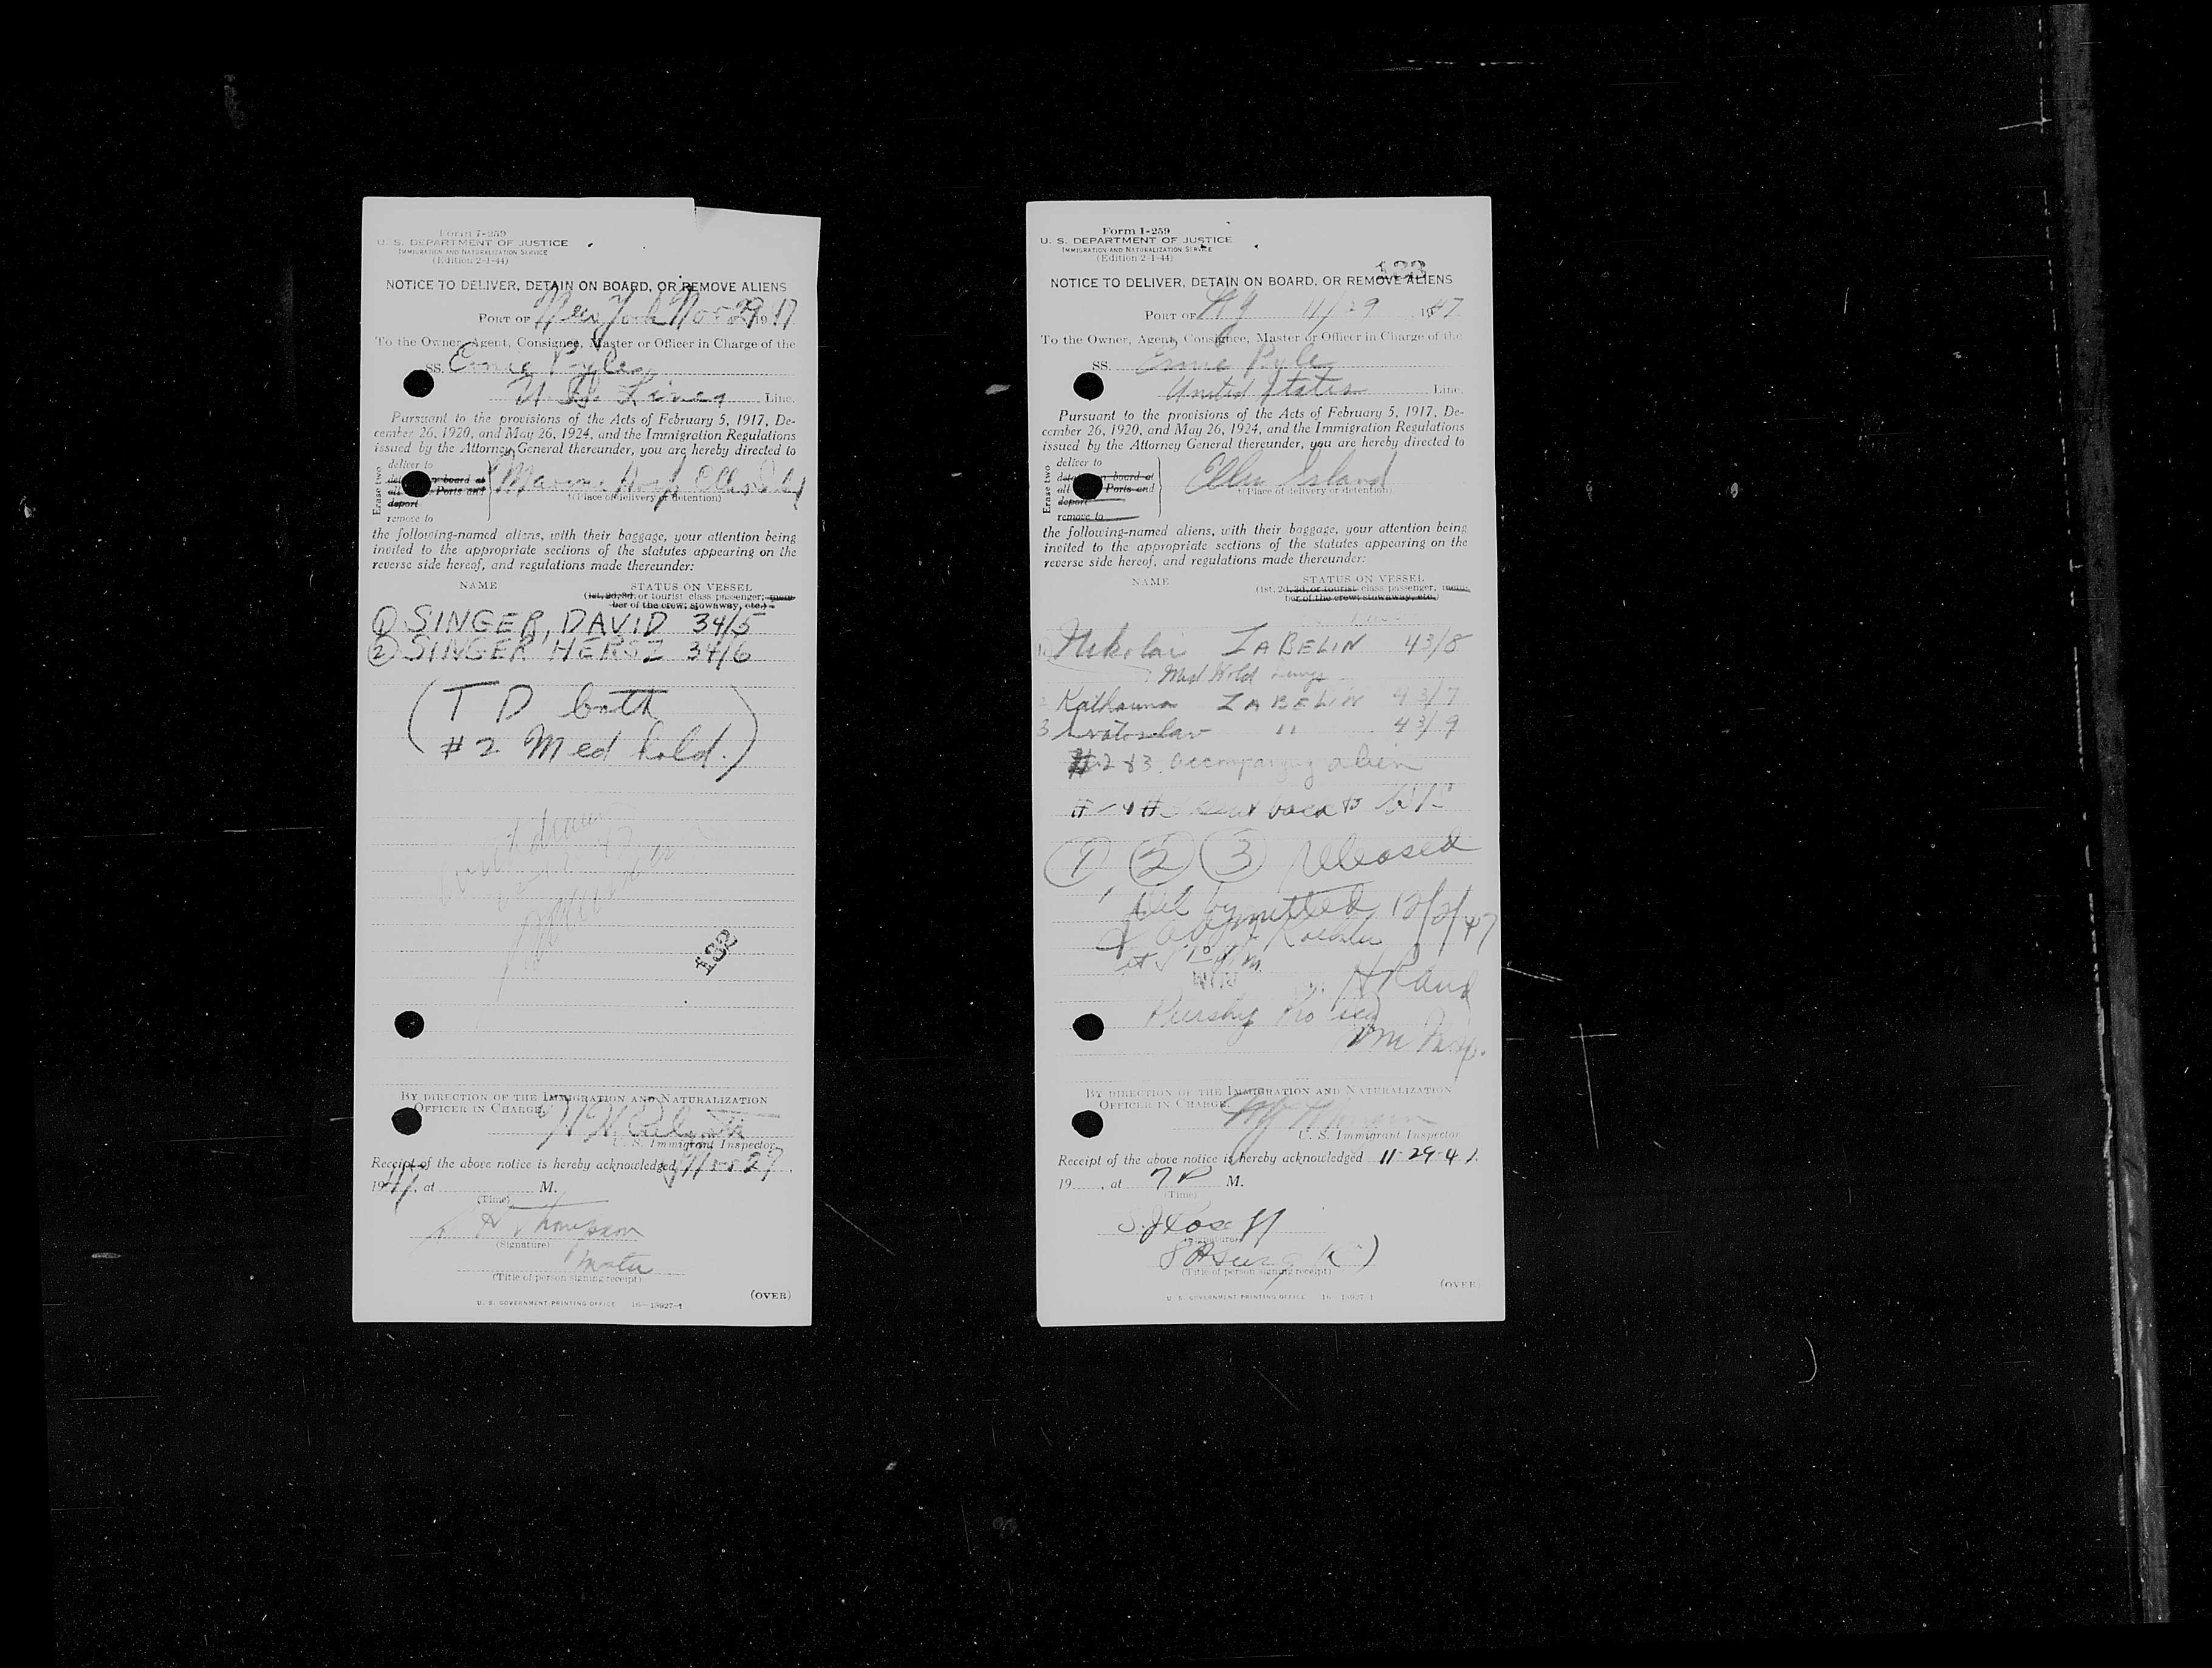 Form I-259
U. S. DEPARTMENT OF JUSTICE
IMMIGRATION AND NATURALIZATION SERVICE
(Edition 2-1-44)
NOTICE TO DELIVER, DETAIN ON BOARD, OR REMOVE ALIENS
PORT OF New York Nov 29 1947
To the Owner, Agent, Consignee, Master or Officer in Charge of the
SS. Ernie Pyle
U S. Lines Line.
Pursuant to the provisions of the Acts of February 5, 1917, De-
cember 26, 1920, and May 26, 1924, and the Immigration Regulations
issued by the Attorney General thereunder, you are hereby directed to
Erase two
deliver to
board at
all Ports and
deport
remove to
Marine Hosp Ellis Island
(Place of delivery or detention)
the following-named aliens, with their baggage, your attention being
invited to the appropriate sections of the statutes appearing on the
reverse side hereof, and regulations made thereunder:
NAME STATUS ON VESSEL
(1st, 2d, 3d, or tourist class passenger; mem-
ber of the crew; stowaway, etc.)
① SINGER, DAVID 34/5
② SINGER HERSZ 34/6
(T D both
#2 Med hold.)
132
BY DIRECTION OF THE IMMIGRATION AND NATURALIZATION
OFFICER IN CHARGE.
U. S. Immigrant Inspector
Receipt of the above notice is hereby acknowledged
1947, at M.
(Time)
Thompson
(Signature)
(Title of person signing receipt)
(OVER)
U. S. GOVERNMENT PRINTING OFFICE 16—13927-1
Form I-259
U. S. DEPARTMENT OF JUSTICE
IMMIGRATION AND NATURALIZATION SERVICE
(Edition 2-1-44)
123
NOTICE TO DELIVER, DETAIN ON BOARD, OR REMOVE ALIENS
PORT OF NY 11/29 1947
To the Owner, Agent, Consignee, Master or Officer in Charge of the
SS. Ernie Pyle
United States Line.
Pursuant to the provisions of the Acts of February 5, 1917, De-
cember 26, 1920, and May 26, 1924, and the Immigration Regulations
issued by the Attorney General thereunder, you are hereby directed to
Erase two
deliver to
board at
all Ports and
deport
remove to
Ellis Island
(Place of delivery or detention)
the following-named aliens, with their baggage, your attention being
invited to the appropriate sections of the statutes appearing on the
reverse side hereof, and regulations made thereunder:
NAME STATUS ON VESSEL
(1st, 2d, 3d, or tourist class passenger, mem-
ber of the crew; stowaway, etc.)
Nikolai ZABELIN 43/8
Med Hold Lungs
2 Katharina ZABELIN 43/7
3 " 43/9
#2 & 3 accompanying alien
back to
① ② ③ released
admitted 12/2/47
BY DIRECTION OF THE IMMIGRATION AND NATURALIZATION
OFFICER IN CHARGE.
U. S. Immigrant Inspector
Receipt of the above notice is hereby acknowledged 11-29-47.
19 , at 7 P M.
(Time)
(Signature)
(Title of person signing receipt)
(OVER)
U. S. GOVERNMENT PRINTING OFFICE 16—13927-1